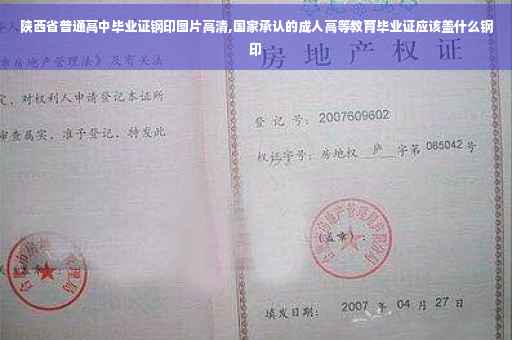 陕西省普通高中毕业证钢印图片高清,国家承认的成人高等教育毕业证应该盖什么钢
印
房地产权证
产管理法》及有关法
定，对权利人申请登记本证所
审查属实，准予登记，特发此
登 记 号：2007609602
权证字号：房地权 庐 字第 085042 号
(盖章)：
填发日期：2007 年 04 月 27 日